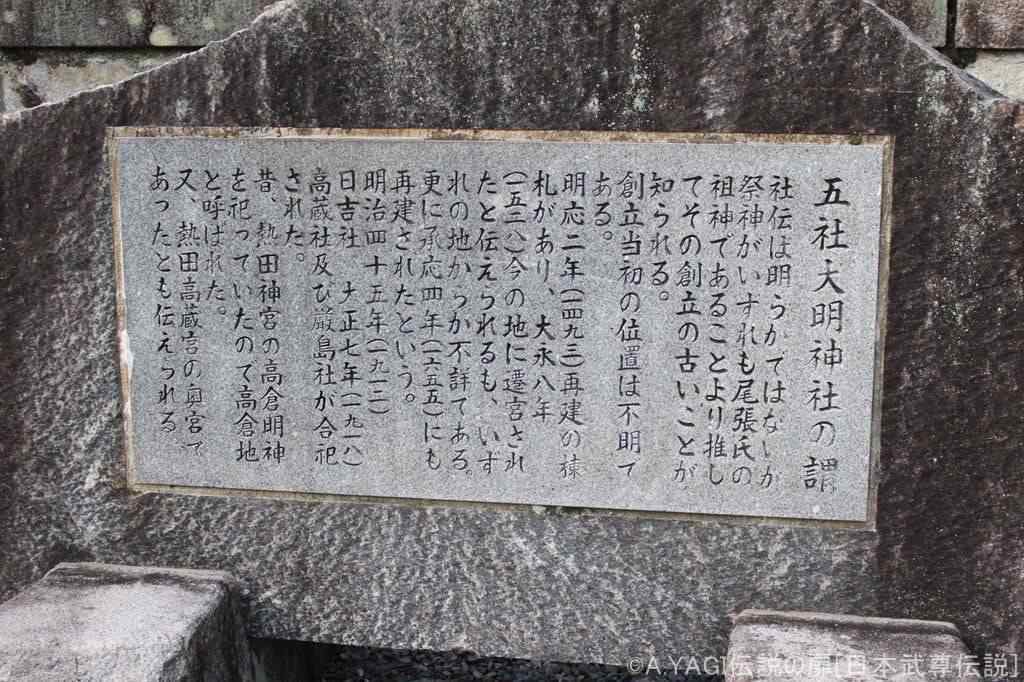 五社大明神社の謂
社伝は明らかではないが
祭神がいずれも尾張氏の
祖神であることより推し
てその創立の古いことが
知られる。
創立当初の位置は不明で
ある。
明応二年(一四九三)再建の棟
札があり、大永八年
(一五二八)今の地に遷宮され
たと伝えられるも、いず
れの地からか不詳である。
更に承応四年(一六五五)にも
再建されたという。
明治四十五年(一九一二)
日吉社、大正七年(一九一八)
高蔵社及び厳島社が合祀
された。
昔、熱田神宮の高倉明神
を祀っていたので高倉地
と呼ばれた。
又、熱田高蔵宮の奥宮で
あったとも伝えられる
©A.YAGI伝説の扉[日本武尊伝説]